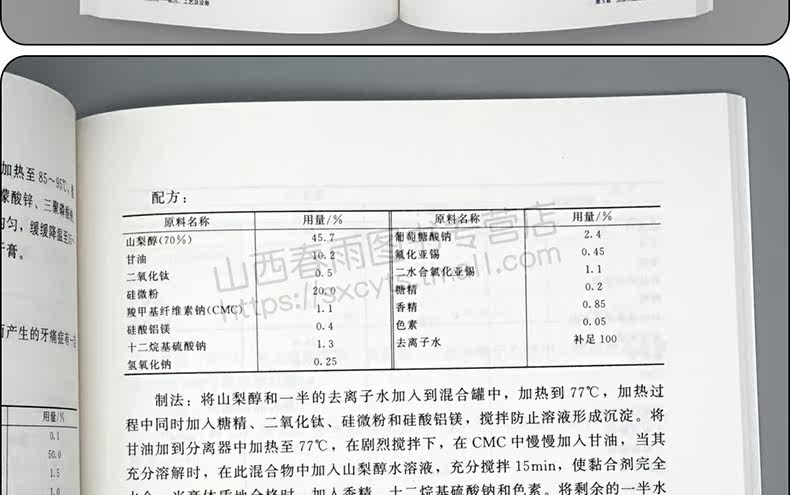 配方、工艺及设备
加热至 85～95℃,
檬酸锌、三聚磷酸钠
匀，缓缓降温至
膏。
而产生的牙痛症有一定
用量/%
0.1
50.0
1.5
1.0
配方：
原料名称 用量/% 原料名称 用量/%
山梨醇(70%) 45.7 葡萄糖酸钠 2.4
甘油 10.2 氟化亚锡 0.45
二氧化钛 0.5 二水合氯化亚锡 1.1
硅微粉 20.0 糖精 0.2
羧甲基纤维素钠(CMC) 1.1 香精 0.85
硅酸铝镁 0.4 色素 0.05
十二烷基硫酸钠 1.3 去离子水 补足 100
氢氧化钠 0.25
制法：将山梨醇和一半的去离子水加入到混合罐中，加热到 77℃，加热过
程中同时加入糖精、二氧化钛、硅微粉和硅酸铝镁，搅拌防止溶液形成沉淀。将
甘油加到分离器中加热至 77℃，在剧烈搅拌下，在 CMC 中慢慢加入甘油，当其
充分溶解时，在此混合物中加入山梨醇水溶液，充分搅拌 15min，使黏合剂完全
水合。当膏体质地合格时，加入香精、十二烷基硫酸钠和色素。将剩余的一半水
山西春雨图书专营店
https://sxcyts.tmall.com